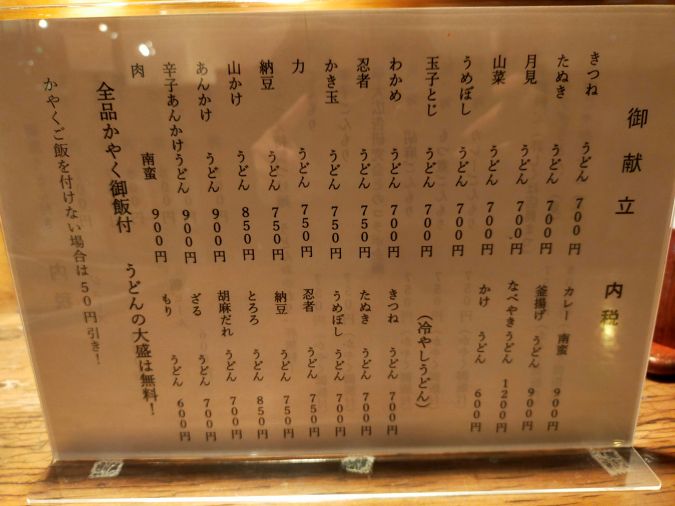 御献立 内税
きつね うどん 700円
たぬき うどん 700円
月見 うどん 700円
山菜 うどん 700円
うめぼし うどん 700円
玉子とじ うどん 700円
わかめ うどん 700円
忍者 うどん 750円
かき玉 うどん 750円
力 うどん 750円
納豆 うどん 750円
山かけ うどん 850円
あんかけ うどん 900円
辛子あんかけうどん 900円
肉 南蛮 900円
カレー 南蛮 900円
釜揚げ うどん 900円
なべやきうどん 1200円
かけ うどん 600円
(冷やしうどん)
きつね うどん 700円
たぬき うどん 700円
うめぼし うどん 700円
忍者 うどん 750円
納豆 うどん 750円
とろろ うどん 850円
胡麻だれ うどん 700円
ざる うどん 700円
もり うどん 600円
全品かやく御飯付 うどんの大盛は無料!
かやくご飯を付けない場合は50円引き!